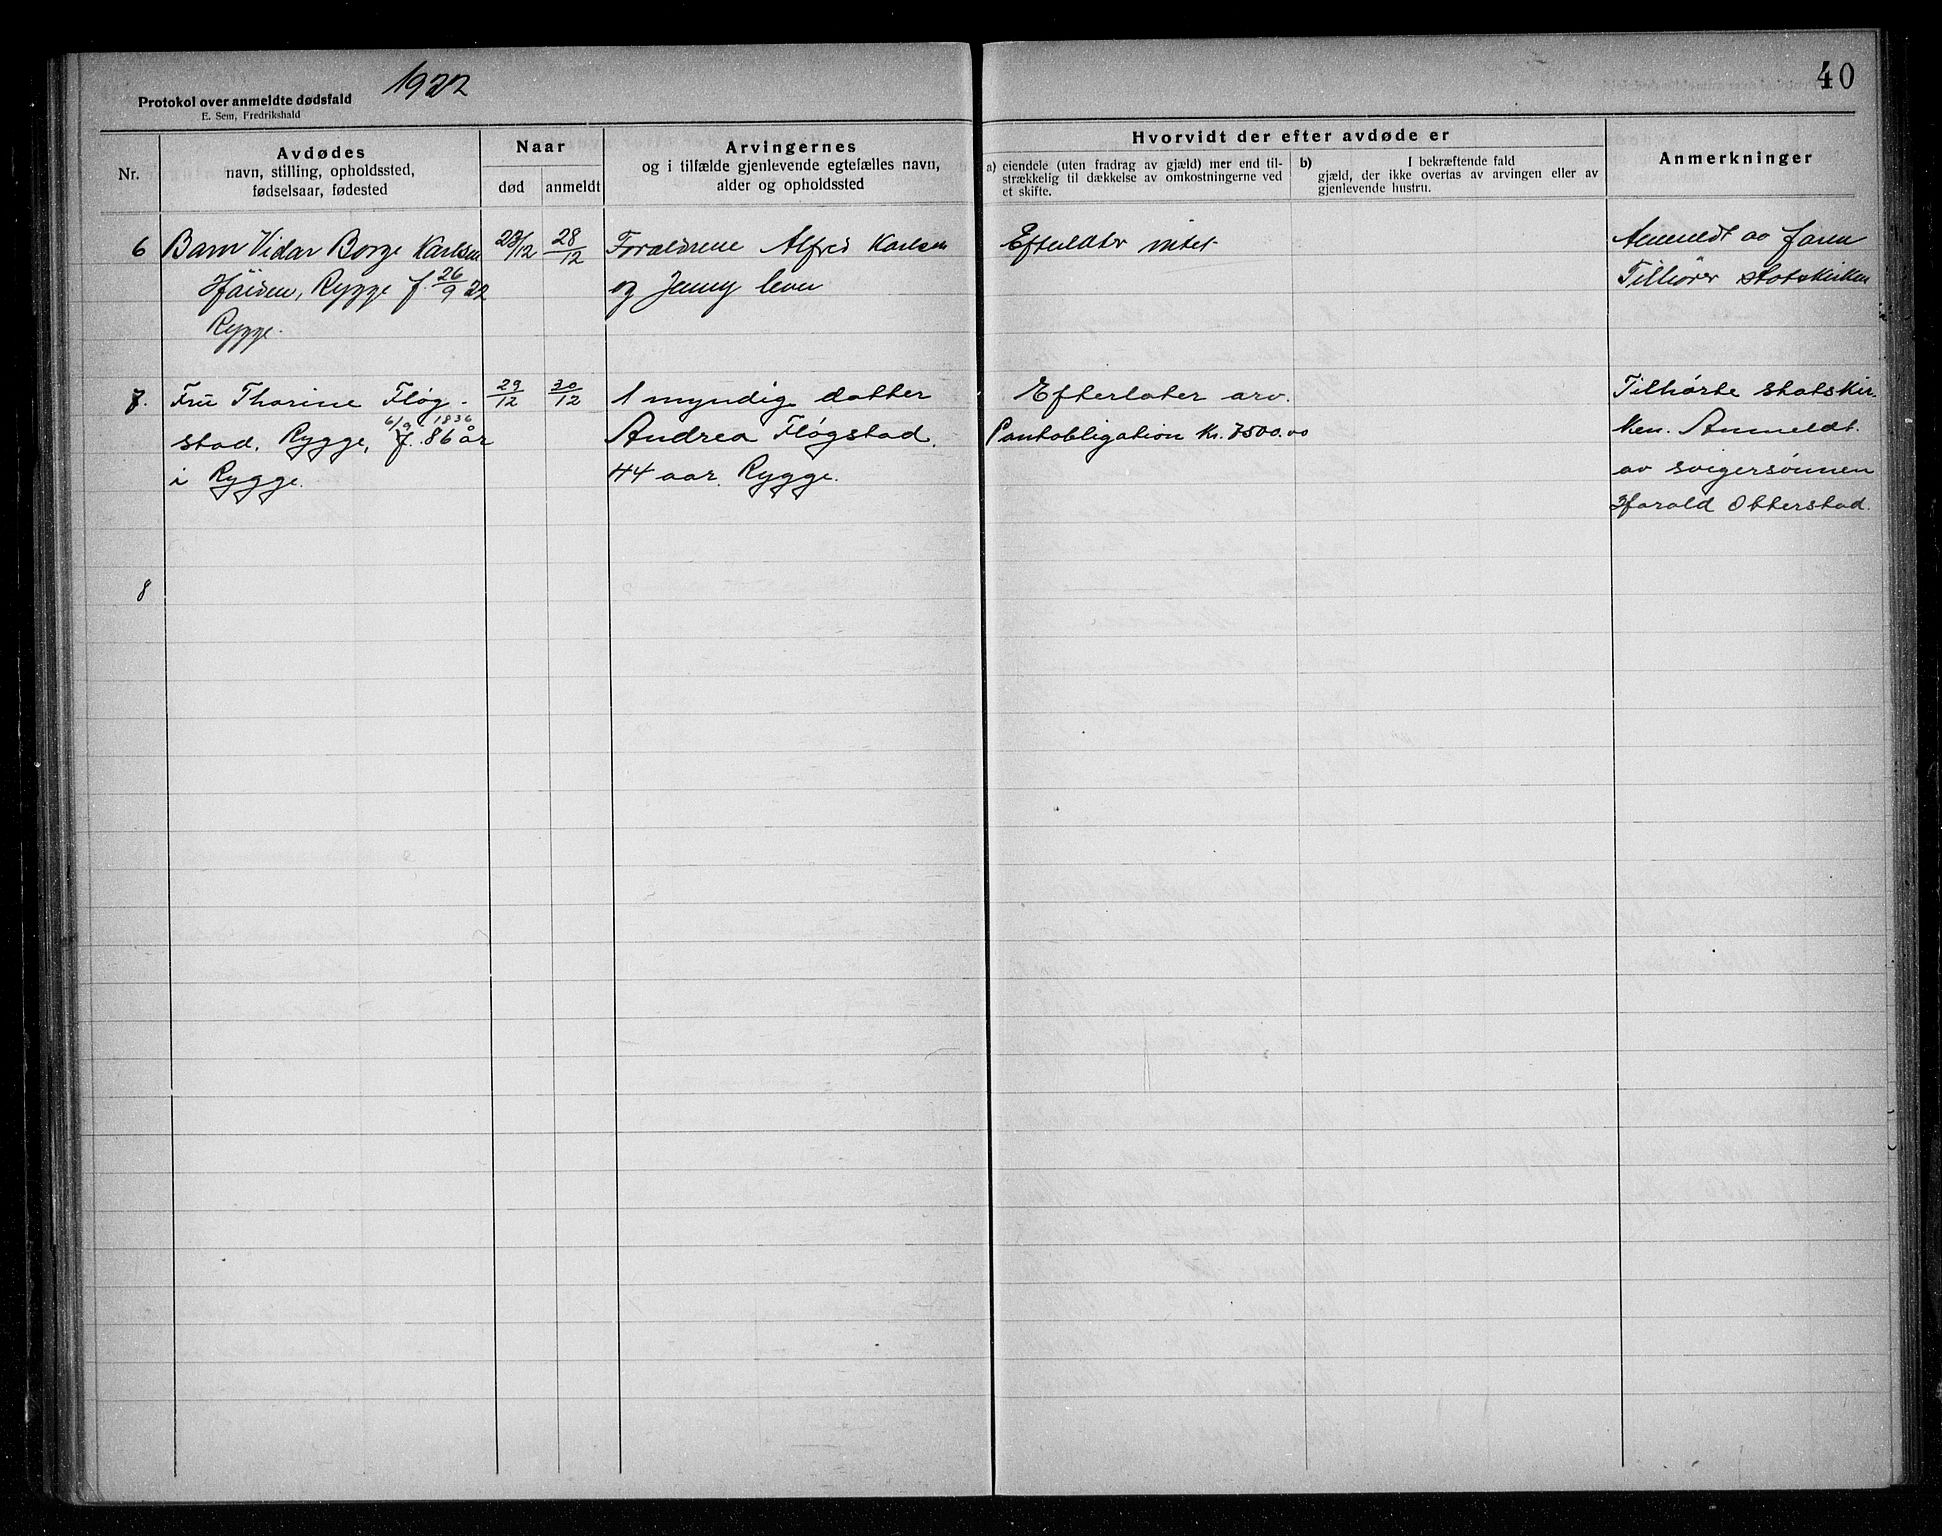 1922
40
Protokol over anmeldte dødsfald
E. Sem, Fredrikshald
Nr.
Avdødes
navn, stilling, opholdssted,
fødselsaar, fødested
Naar
død
anmeldt
Arvingernes
og i tilfælde gjenlevende egtefælles navn,
alder og opholdssted
Hvorvidt der efter avdøde er
a) eiendele (uten fradrag av gjæld) mer end til-
strækkelig til dækkelse av omkostningerne ved
et skifte.
b) I bekræftende fald
gjæld, der ikke overtas av arvingen eller av
gjenlevende hustru.
Anmerkninger
6 Barn Vidar Borge Karlsen 23/12 28/12 Forældrene Alfred Karlsen Efterlater intet Anmeldt av faren
Rygge f. 26/9 22 og Jenny lever Tilhører statskirken
Rygge.
7. Fru Thorine Fløg- 29/12 30/12 1 myndig datter Efterlater arv. Tilhørte statskir-
6/9 1836
stad, Rygge, f. 86 år Andrea Fløgstad, Pantobligation Kr. 7500.00 ken. Anmeldt.
i Rygge. 44 aar, Rygge. av svigersønnen
Harald Otterstad.
8